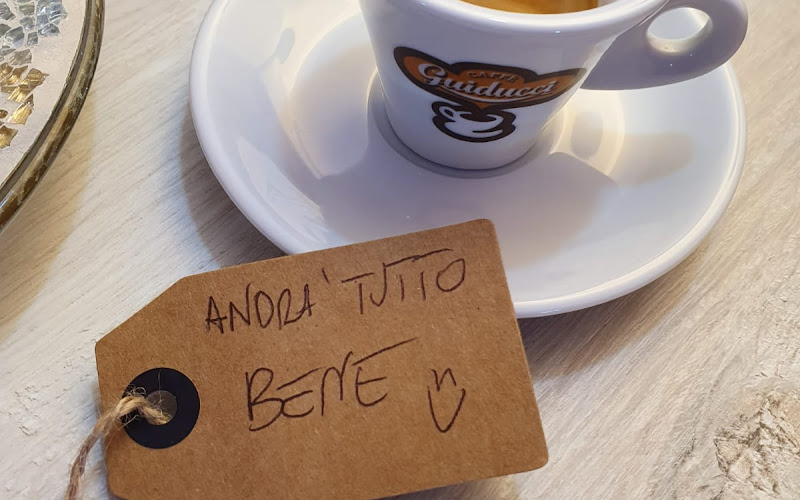 CAFFÈ
Guiducci
ANDRA' TUTTO
BENE